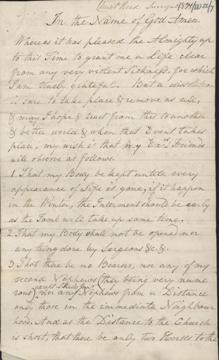 In the Name of God Amen.
Whereas it has pleased the Almighty up
to this Time to grant me in Life clear
from any very violent Sickness, for which
I am truly grateful. But a dissolution
is sure to take place & remove us all,
& may I hope & trust from this to another
& better world & when that Event takes
place, my wish is that my Exrs & Friends
will observe as follows
1. That my Body be kept untill every
appearance of Life is gone, & if it happen
in the Winter, the Interment should be early
as the Tomb will take up some time.
2 That my Body shall not be opened nor
any thing done by Surgeons &c &c.
3 That there be no Bearers, nor any of my
second Nephews (they being very nume
rous) nor any Nephews from a Distance
only those in the immediate Neighbour
hood. And as the Distance to the Church
is short, that there be only two Horses to the